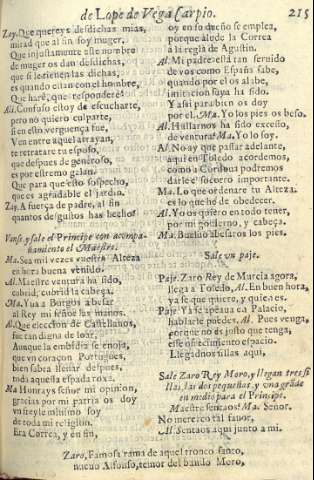 de Lope de Vega Carpio. 215
Zay. Que quereys desdichas mias,
mirad que al fin soy muger,
Que injustamente este nombre
de muger os dan desdichas,
que si se tienen las dichas,
es quando citan con el hombre,
Que haré, que responderé?
Al. Confuso estoy de escucharte,
pero no quiero culparte,
si en esto verguença fue,
Ven entre aquel arrayan,
te retratare tu esposo,
que despues de generoso,
es por estremo galan.
Que para que esto sospecho,
que es agradable el jardin.
Zay. A fuerça de padre, al fin
quantos desgustos has hecho?
Vanse, y sale el Principe con acompa-
ñamiento el Maestre.
Ma. Sea mil vezes vuestra Alteza
en hora buena venido.
Al. Maestre ventura ha sido,
cubrid, cubrid la cabeça.
Ma. Yua a Burgos a besar
al Rey mi señor las manos.
Al. Que eleccion de Castellanos,
fue tan digna de loar,
Aunque la embidia se enoja,
que vn coraçon Portugues,
bien sabra lleuar despues,
toda aquella espada roxa.
Ma. Honrays señor mi opinion,
gracias por mi patria os doy
vn freyle minimo soy
de toda mi religion.
Era Correa, y en fin,
oy en so dueño se emplea,
porque alude la Correa
a la regla de Agustin.
Al. Mi padre está tan seruido
de vos como España sabe,
quando por el os alabe,
imitacion suya ha sido.
Y assi para bien os doy
por el. Ma. Yo los pies os beso.
Al. Hallarnos ha sido excesso,
de ventura: Ma. Yo lo soy.
Al. No ay que passar adelante,
aqui en Toledo acordemos,
como a Cordoua podremos
darle el socorro importante.
Ma. Lo que ordenare tu Alteza.
es lo que hé de obedecer.
Al. Yo os quiero en todo tener,
por mi gouierno, y cabeça.
Ma. Bueluo a besaros los pies.
Sale vn paje.
Paje. Zaro Rey de Murcia agora,
llega a Toledo, Al. En buen hora,
ya se que quiere, y quien es.
Paje. Ya se apeaua en Palacio,
hablarle puedes. Al. Pues venga,
porque no es justo que tenga,
esse ofrecimiento espacio.
Llegadnos sillas aqui,
Sale Zaro Rey Moro, y llegan tres si
llas, las dos pequeñas y vna gráde
en medio para el Principe.
Maestre sentaos: Ma. Señor.
No merezco tal fauor,
Al. Sentaos aqui junto a mi.
Zaro, Famosa rama de aquel tronco santo,
nueuo Alfonso, temor del bando Moro,